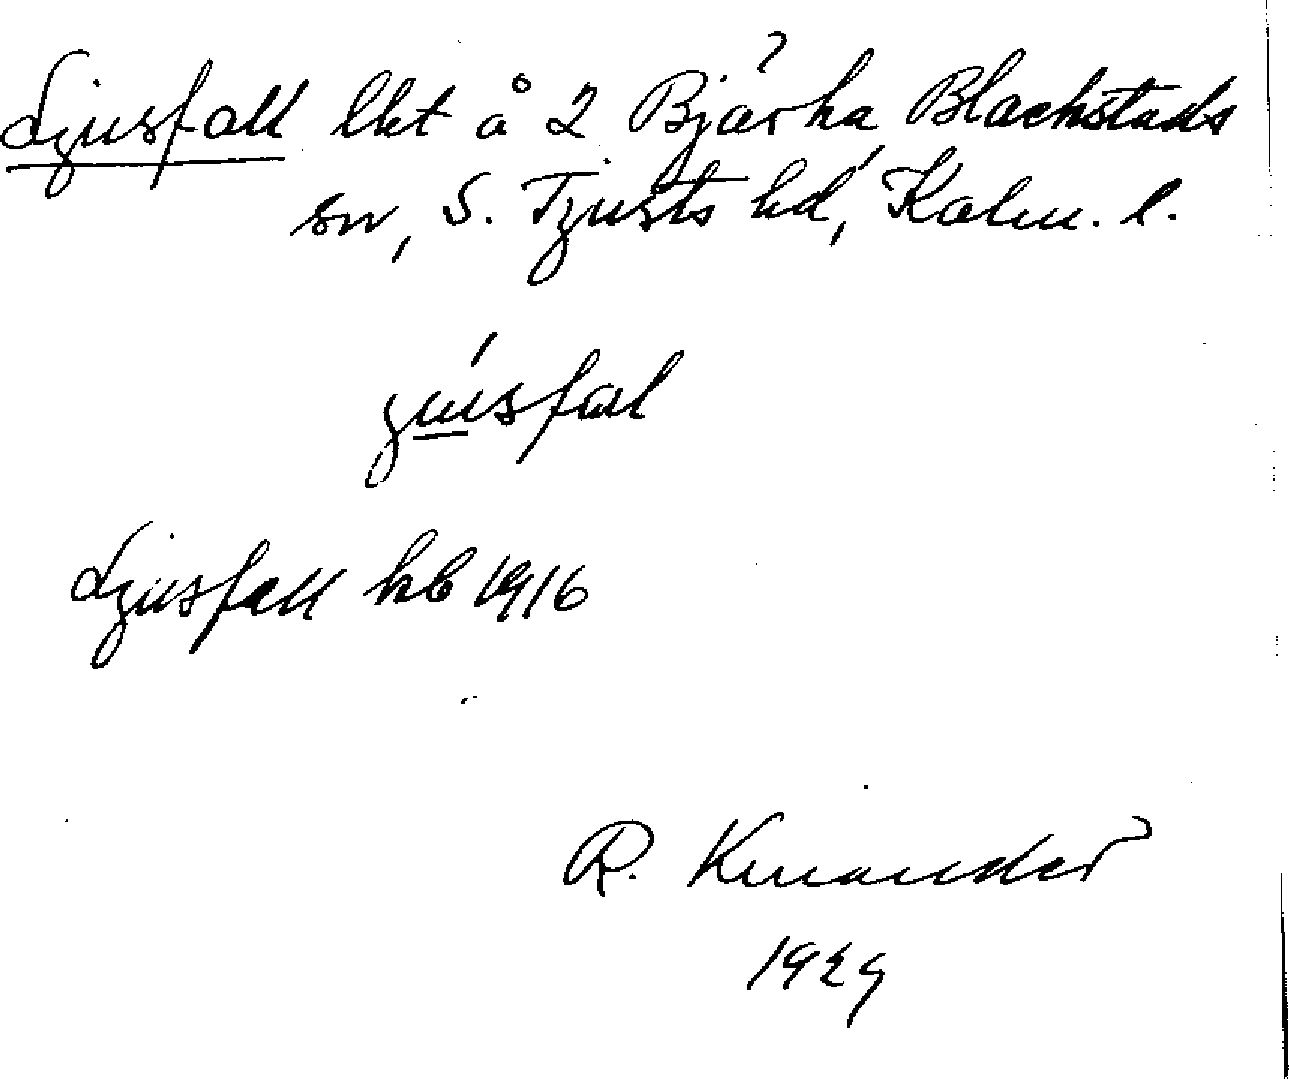 Ljusfall lht å 2 Bjärka Blackstads
sn, S. Tjusts hd, Kalm. l.
jusfal
Ljusfall kb 1916
R. Kinander
1929